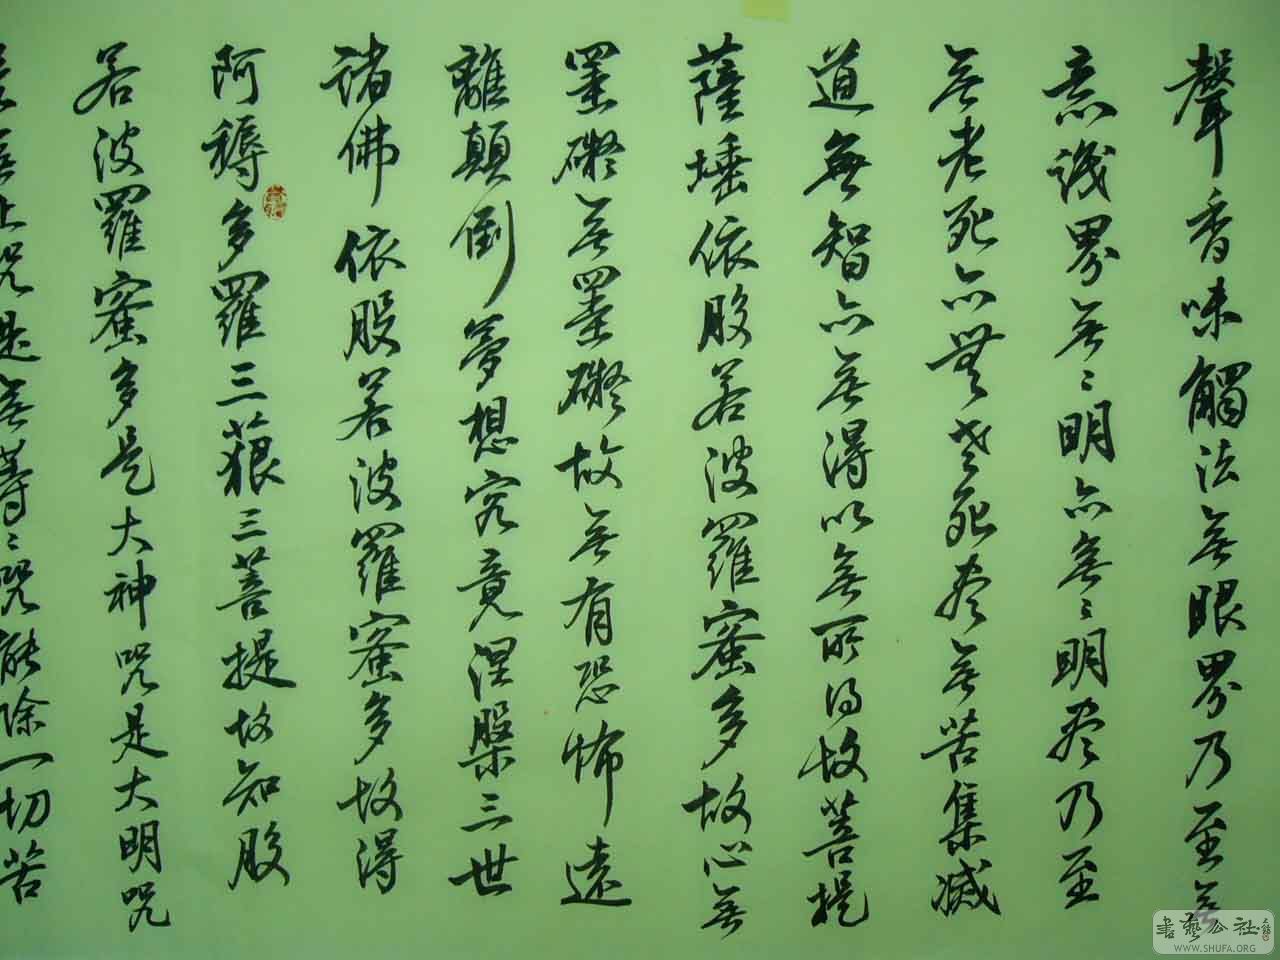 聲香味觸法無眼界乃至無
意識界無々明亦無々明盡乃至
無老死亦無老死盡無苦集滅
道無智亦無得以無所得故菩提
薩埵依般若波羅蜜多故心無
罣礙無罣礙故無有恐怖遠
離顛倒夢想究竟涅槃三世
諸佛依般若波羅蜜多故得
阿耨多羅三藐三菩提故知般
若波羅蜜多是大神咒是大明咒
是無上咒是無等々咒能除一切苦
書藝公社
WWW.SHUFA.ORG